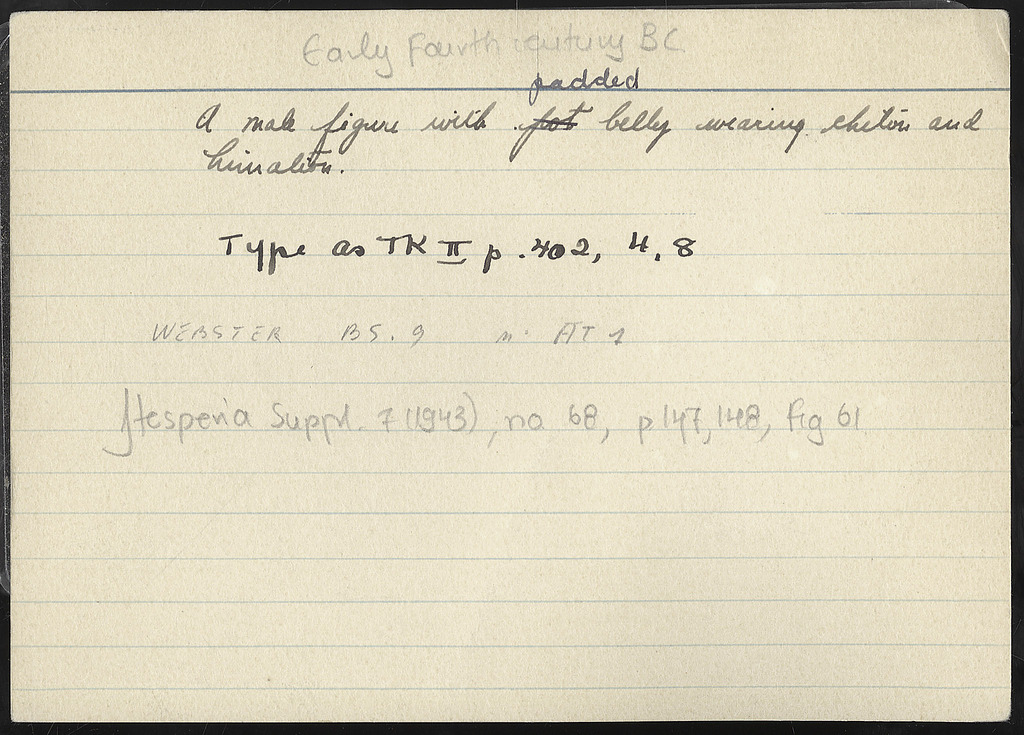 Early Fourth century BC
padded
A male figure with fat belly wearing chiton and
himation.
Type as TK II p. 402, 4, 8
WEBSTER BS. 9 AT 1
Hesperia Suppl. 7 (1943), no 68, p 147, 148, fig 61